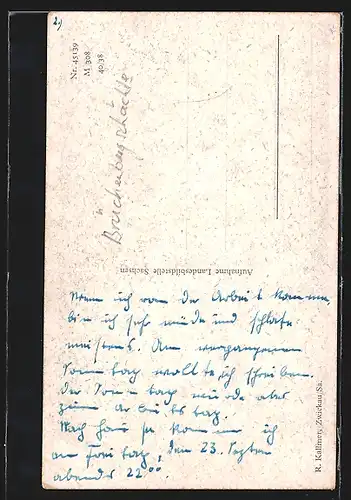 2)
Nr. 45139
M 308
40/38
Brückenbergschächte
Aufnahme Landesbildstelle Sachsen
Wenn ich von der Arbeit komme,
bin ich sehr müde und schlafe
meistens. Am vergangenen
Sonntag wollte ich schreiben.
Der Sonntag wurde aber
zum Arbeitstag.
Nach Hause komme ich
am Freitag, den 23. Septem
abends 22°°.
R. Kallmer, Zwickau/Sa.